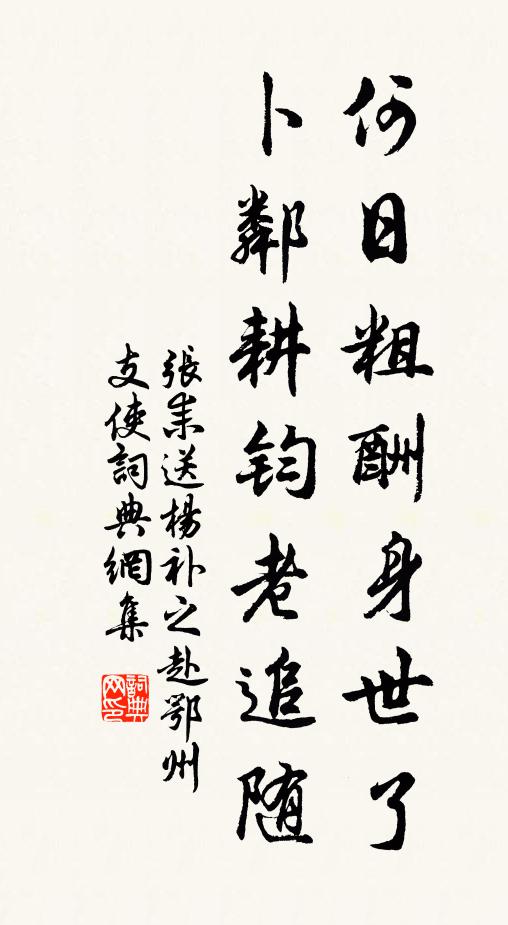 何日粗酬身世了
卜鄰耕鈞老追随
張耒送楊补之赴鄂州
支使詞典網集
詞典
网印